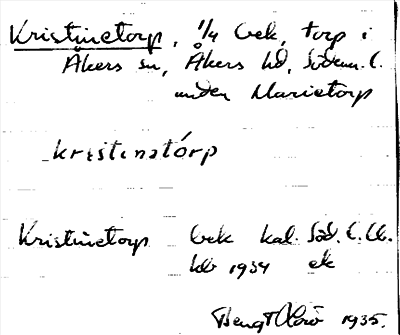 Kristinetorp, 1/4 bek, torp i
Åkers sn, Åkers hd, Södm. l.
under Marietorp
kristinatórp
Kristinetorp bek kal. Söd. l.
hb 1934 ek
Bengt 1935.